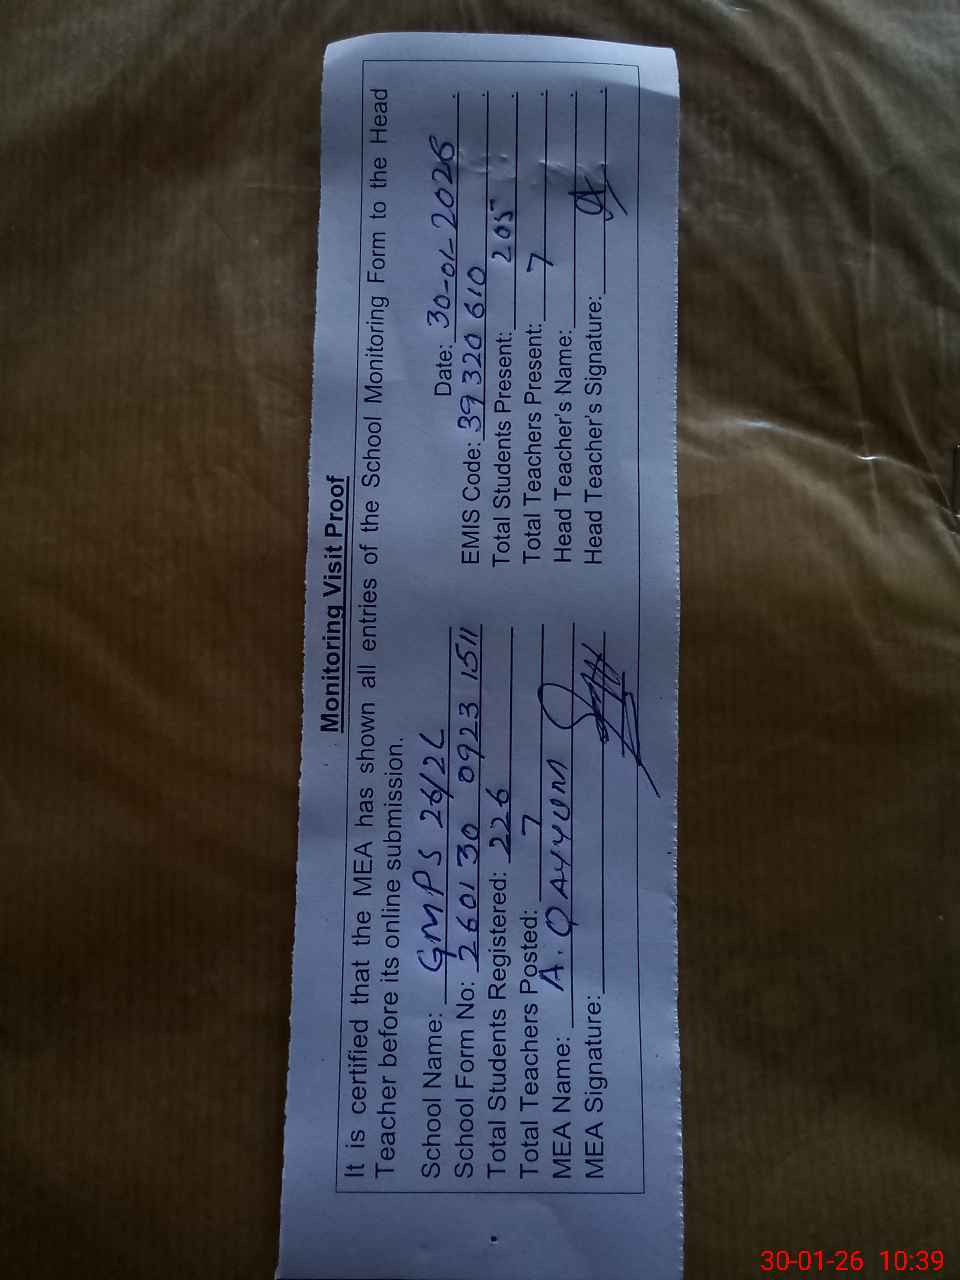 Monitoring Visit Proof
It is certified that the MEA has shown all entries of the School Monitoring Form to the Head
Teacher before its online submission.
Date: 30-01-2026
School Name: GMPS 26/2L
EMIS Code: 39320610
School Form No: 260130 0923 1511
Total Students Present: 205
Total Students Registered: 226
Total Teachers Present: 7
Total Teachers Posted: 7
Head Teacher's Name:
MEA Name: A. QAYYUM
Head Teacher's Signature:
MEA Signature:
30-01-26 10:39